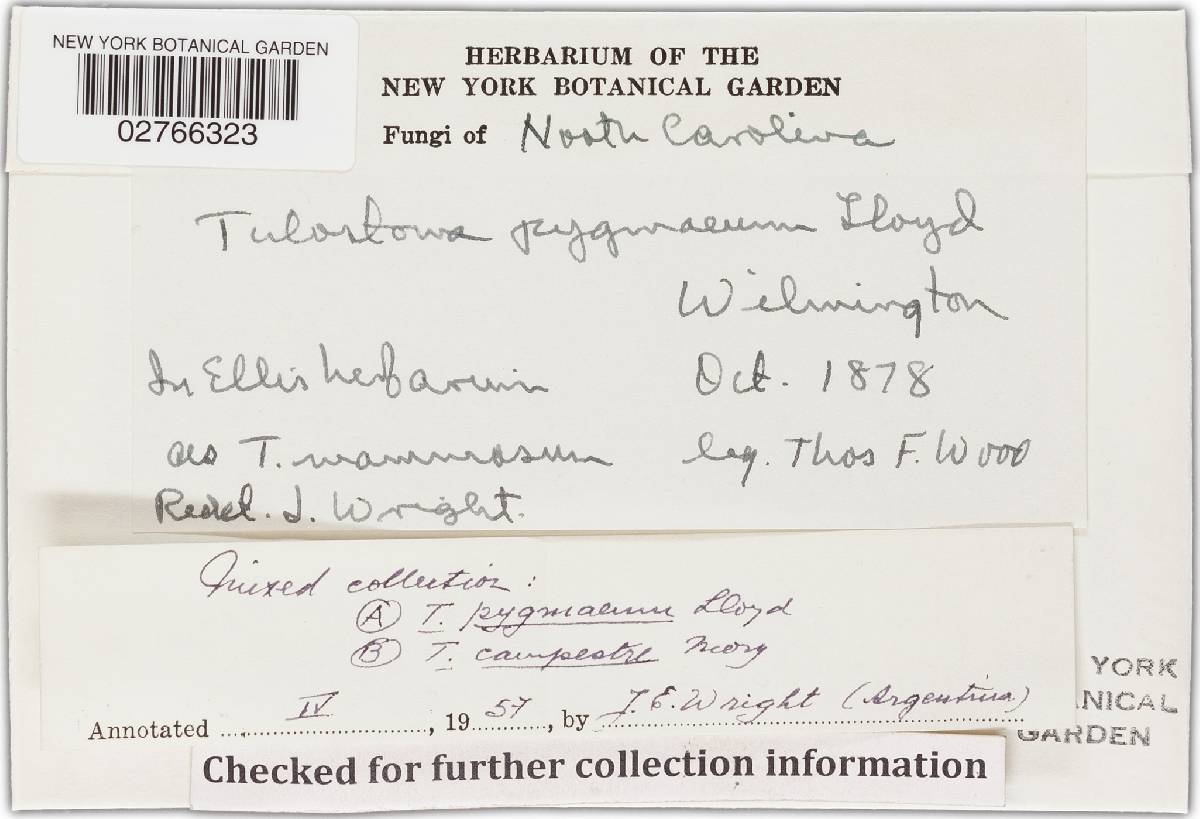 NEW YORK BOTANICAL GARDEN
02766323
HERBARIUM OF THE
NEW YORK BOTANICAL GARDEN
Fungi of North Carolina
Tulostoma pygmaeum Lloyd
Wilmington
In Ellis herbarium Oct. 1878
as T. mammosum leg. Thos F. Wood
Redet. J. Wright.
Mixed collection:
(A) T. pygmaeum Lloyd
(B) T. campestre Morg
Annotated IV, 1957, by J. E. Wright (Argentina)
YORK
ANICAL
GARDEN
Checked for further collection information